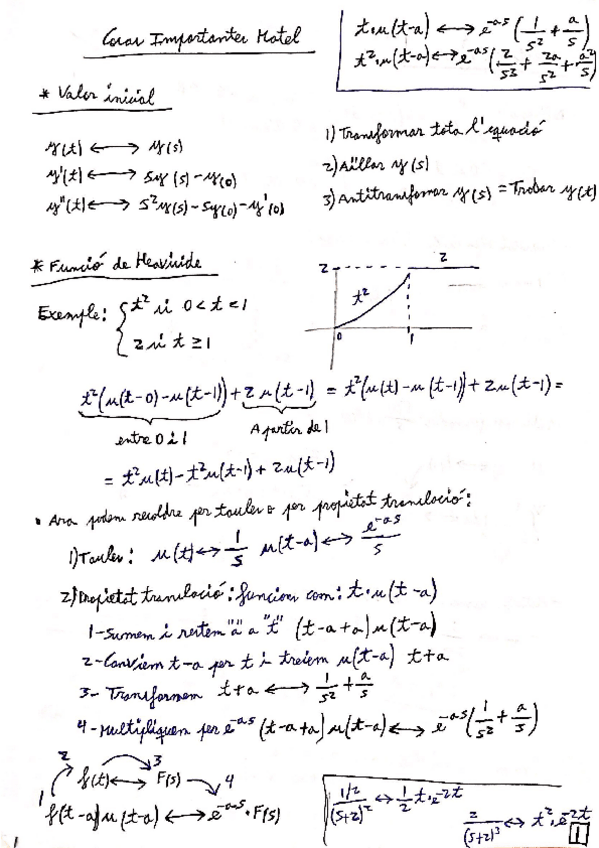 Coses Importantes Hotel
t·u(t-a) ⟷ e^{-as} (1/s² + a/s)
t²·u(t-a) ⟷ e^{-as} (2/s³ + 2a/s² + a²/s)
* Valor inicial
y(t) ⟷ y(s)
y'(t) ⟷ sy(s) - y(0)
y''(t) ⟷ s²y(s) - sy(0) - y'(0)
1) Transformar tota l'equació
2) Aïllar y(s)
3) Antitransformar y(s) = Trobar y(t)
* Funció de Heaviside
Exemple: { t² si 0 < t < 1
2 si t ≥ 1
2
2
t²
0
1
t²(u(t-0) - u(t-1)) + 2u(t-1) = t²(u(t) - u(t-1)) + 2u(t-1) =
entre 0 i 1
A partir de 1
= t²u(t) - t²u(t-1) + 2u(t-1)
• Ara podem resoldre per taules o per propietat translació:
1) Taules: u(t) ⟷ 1/s u(t-a) ⟷ e^{-as}/s
2) Propietat translació: funcions com: t·u(t-a)
1- Sumem i restem "a" a "t" (t-a+a)u(t-a)
2- Canviem t-a per t i treiem u(t-a) t+a
3- Transformem t+a ⟷ 1/s² + a/s
4- Multipliquem per e^{-as} (t-a+a)u(t-a) ⟷ e^{-as} (1/s² + a/s)
2
3
f(t) ⟷ F(s)
4
1
f(t-a)u(t-a) ⟷ e^{-as}·F(s)
1/2/(s+2)² ⟷ 1/2 t·e^{-2t}
2/(s+2)³ ⟷ t²·e^{-2t}
1